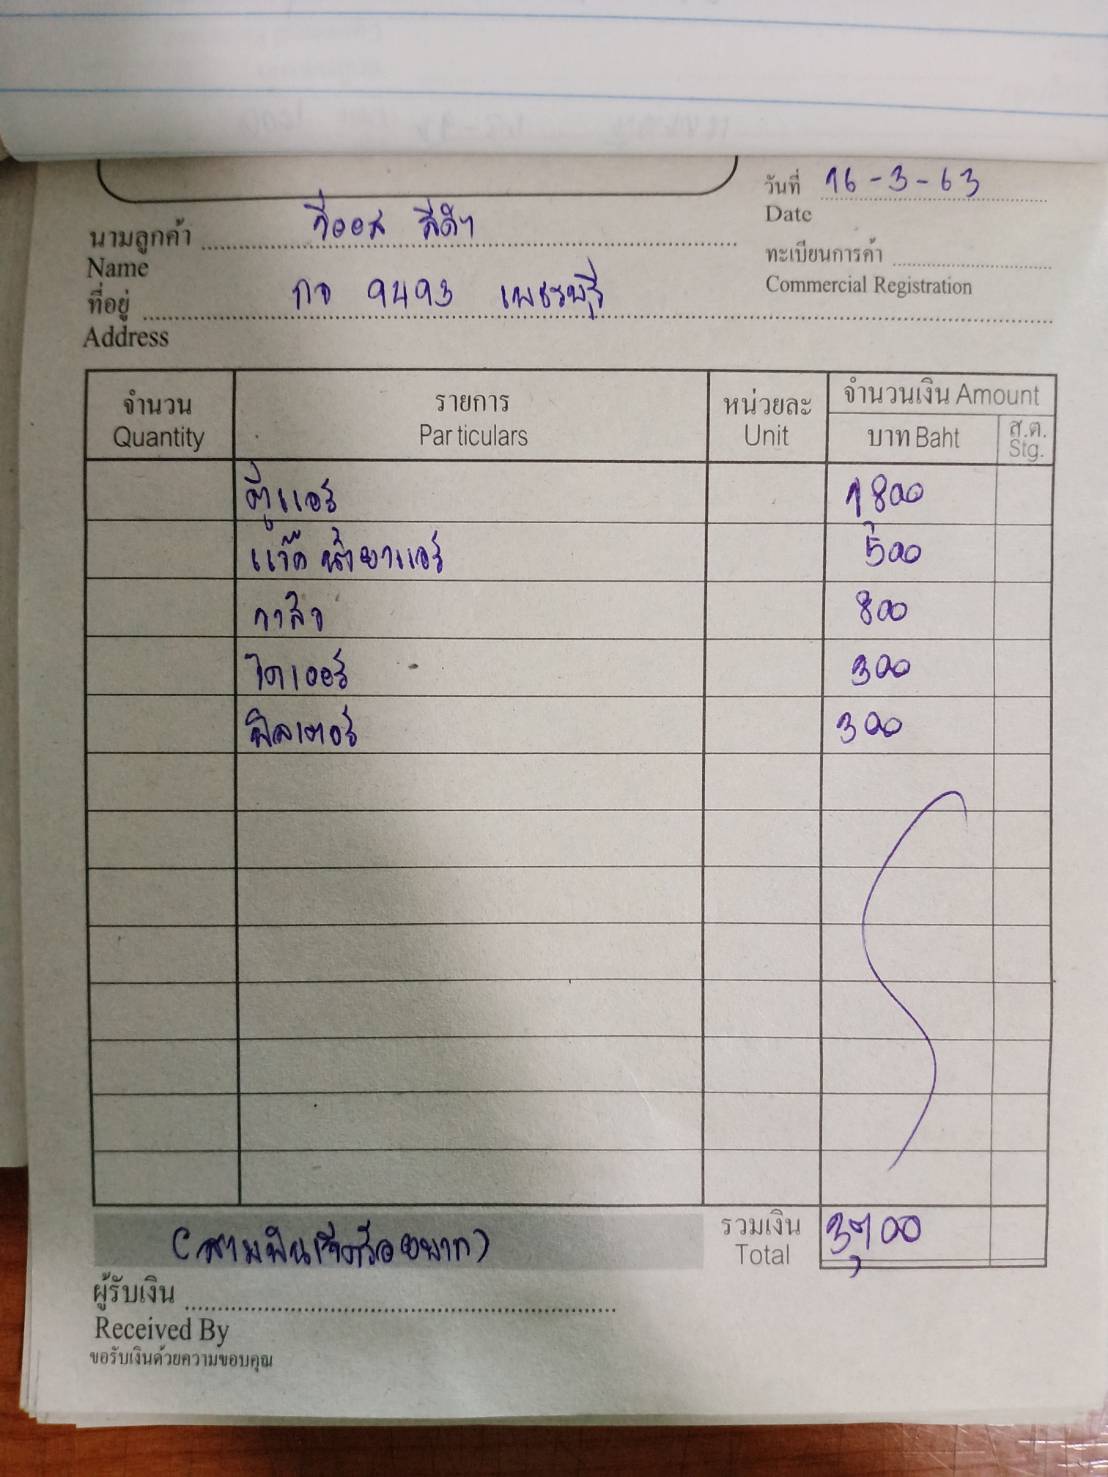 วันที่ 16-3-63
Date
นามลูกค้า วีออส สีดำ
Name
ทะเบียนการค้า
Commercial Registration
ที่อยู่ กจ 9493 เพชรบุรี
Address
จำนวน รายการ หน่วยละ จำนวนเงิน Amount
Quantity Particulars Unit บาท Baht ส.ต. Stg.
ตู้แอร์ 1800
แว๊ค น้ำยาแอร์ 500
วาล์ว 800
ไดเออร์ 300
ฟิลเตอร์ 300
(สามพันเจ็ดร้อยบาท) รวมเงิน 3,700
Total
ผู้รับเงิน
Received By
ขอรับเงินด้วยความขอบคุณ